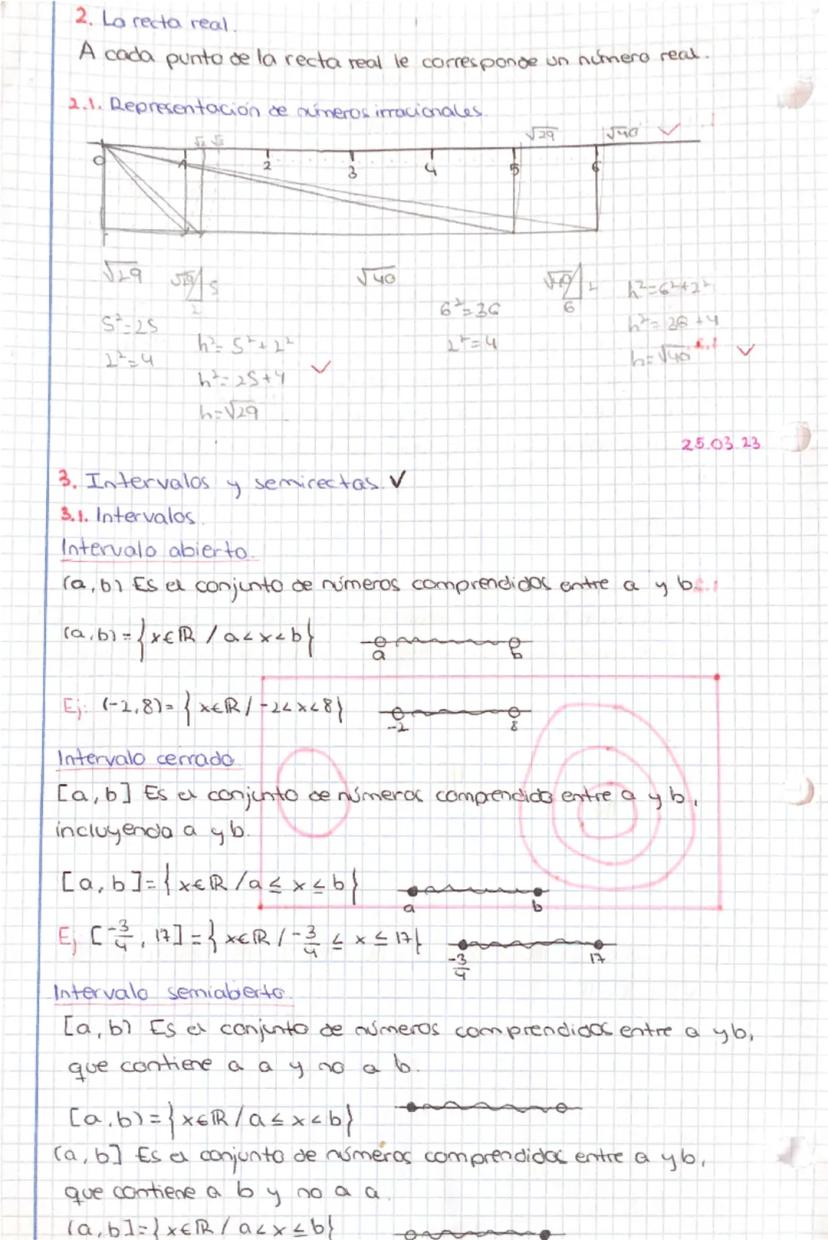 2. La recta real.
A cada punto de la recta real le corresponde un número real.
2.1. Representación de números irracionales.
√29 √40
0 1 2 3 4 5 6
√29 √29 5 2
5²=25
2²=4
h²=5²+2²
h²=25+4
h=√29
√40
6²=36
2²=4
√40 2 6
h²=6²+2²
h²=36+4
h=√40
25.03.23
3. Intervalos y semirectas ✓
3.1. Intervalos
Intervalo abierto.
(a,b) Es el conjunto de números comprendidos entre a y b
(a,b)={x∈ℝ / a<x<b} a b
Ej: (-2,8)={x∈ℝ / -2<x<8} -2 8
Intervalo cerrado
[a,b] Es el conjunto de números comprendido entre a y b,
incluyendo a y b.
[a,b]={x∈ℝ/a≤x≤b} a b
Ej [-3/4, 17]={x∈ℝ/-3/4 ≤ x ≤ 17} -3/4 17
Intervalo semiabierto.
[a,b) Es el conjunto de números comprendidos entre a y b,
que contiene a a y no a b.
[a,b)={x∈ℝ/a≤x<b}
(a,b] Es el conjunto de números comprendidos entre a y b,
que contiene a b y no a a.
(a,b]={x∈ℝ/a<x≤b}